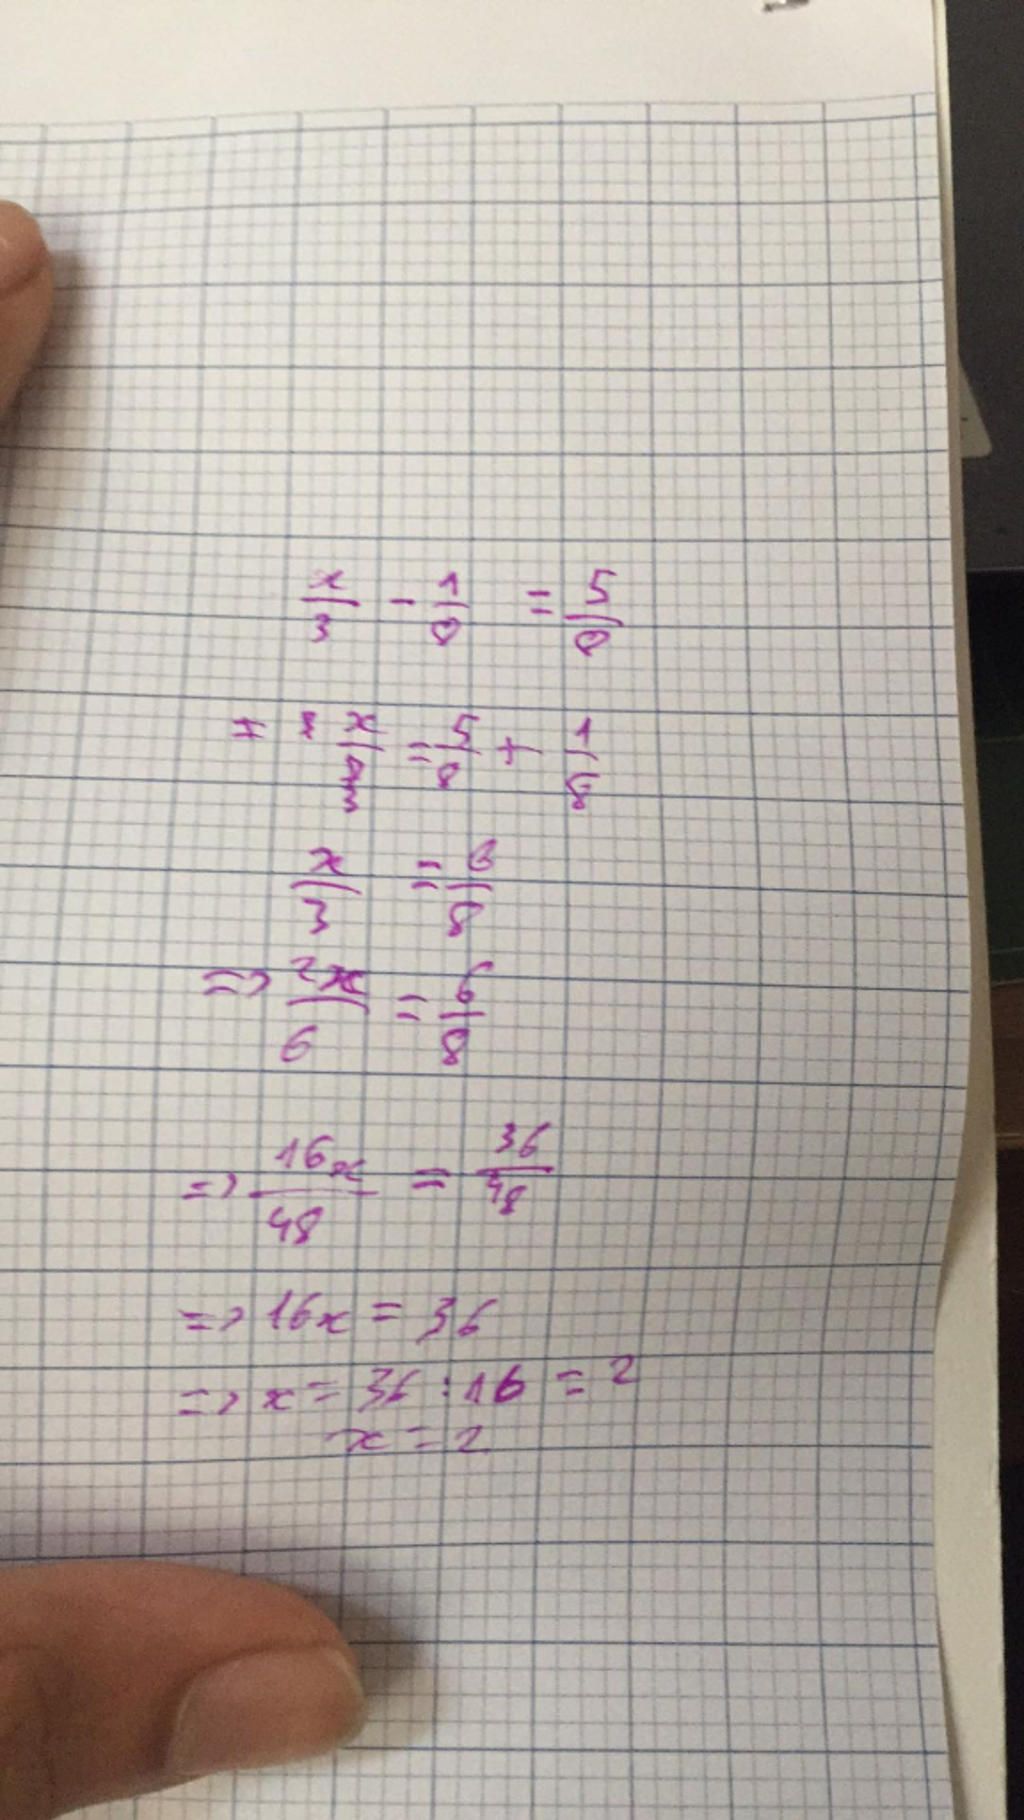 x/3 - 1/8 = 5/8
= x/3 = 5/8 + 1/8
x/3 = 6/8
=> 2x/6 = 6/8
=> 16x/48 = 36/48
=> 16x = 36
=> x = 36 : 16 = 2
x = 2